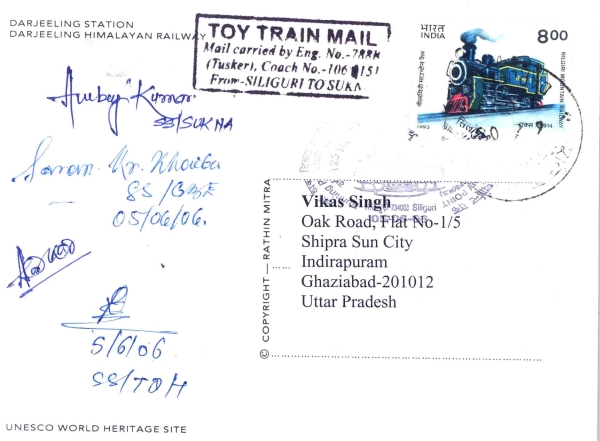 DARJEELING STATION
DARJEELING HIMALAYAN RAILWAY
TOY TRAIN MAIL
Mail carried by Eng. No.-788K
(Tusker), Coach No.-106
From-SILIGURI TO SUKNA
भारत
INDIA
800
नीलगिरी माउन्टेन रेल
NILGIRI MOUNTAIN RAILWAY
1993
Kumar
SS/SUKNA
05/06/06.
5/6/06
SS/TDH
734003 Siliguri
05-06-06
Vikas Singh
Oak Road, Flat No-1/5
Shipra Sun City
Indirapuram
Ghaziabad-201012
Uttar Pradesh
© COPYRIGHT — RATHIN MITRA
UNESCO WORLD HERITAGE SITE